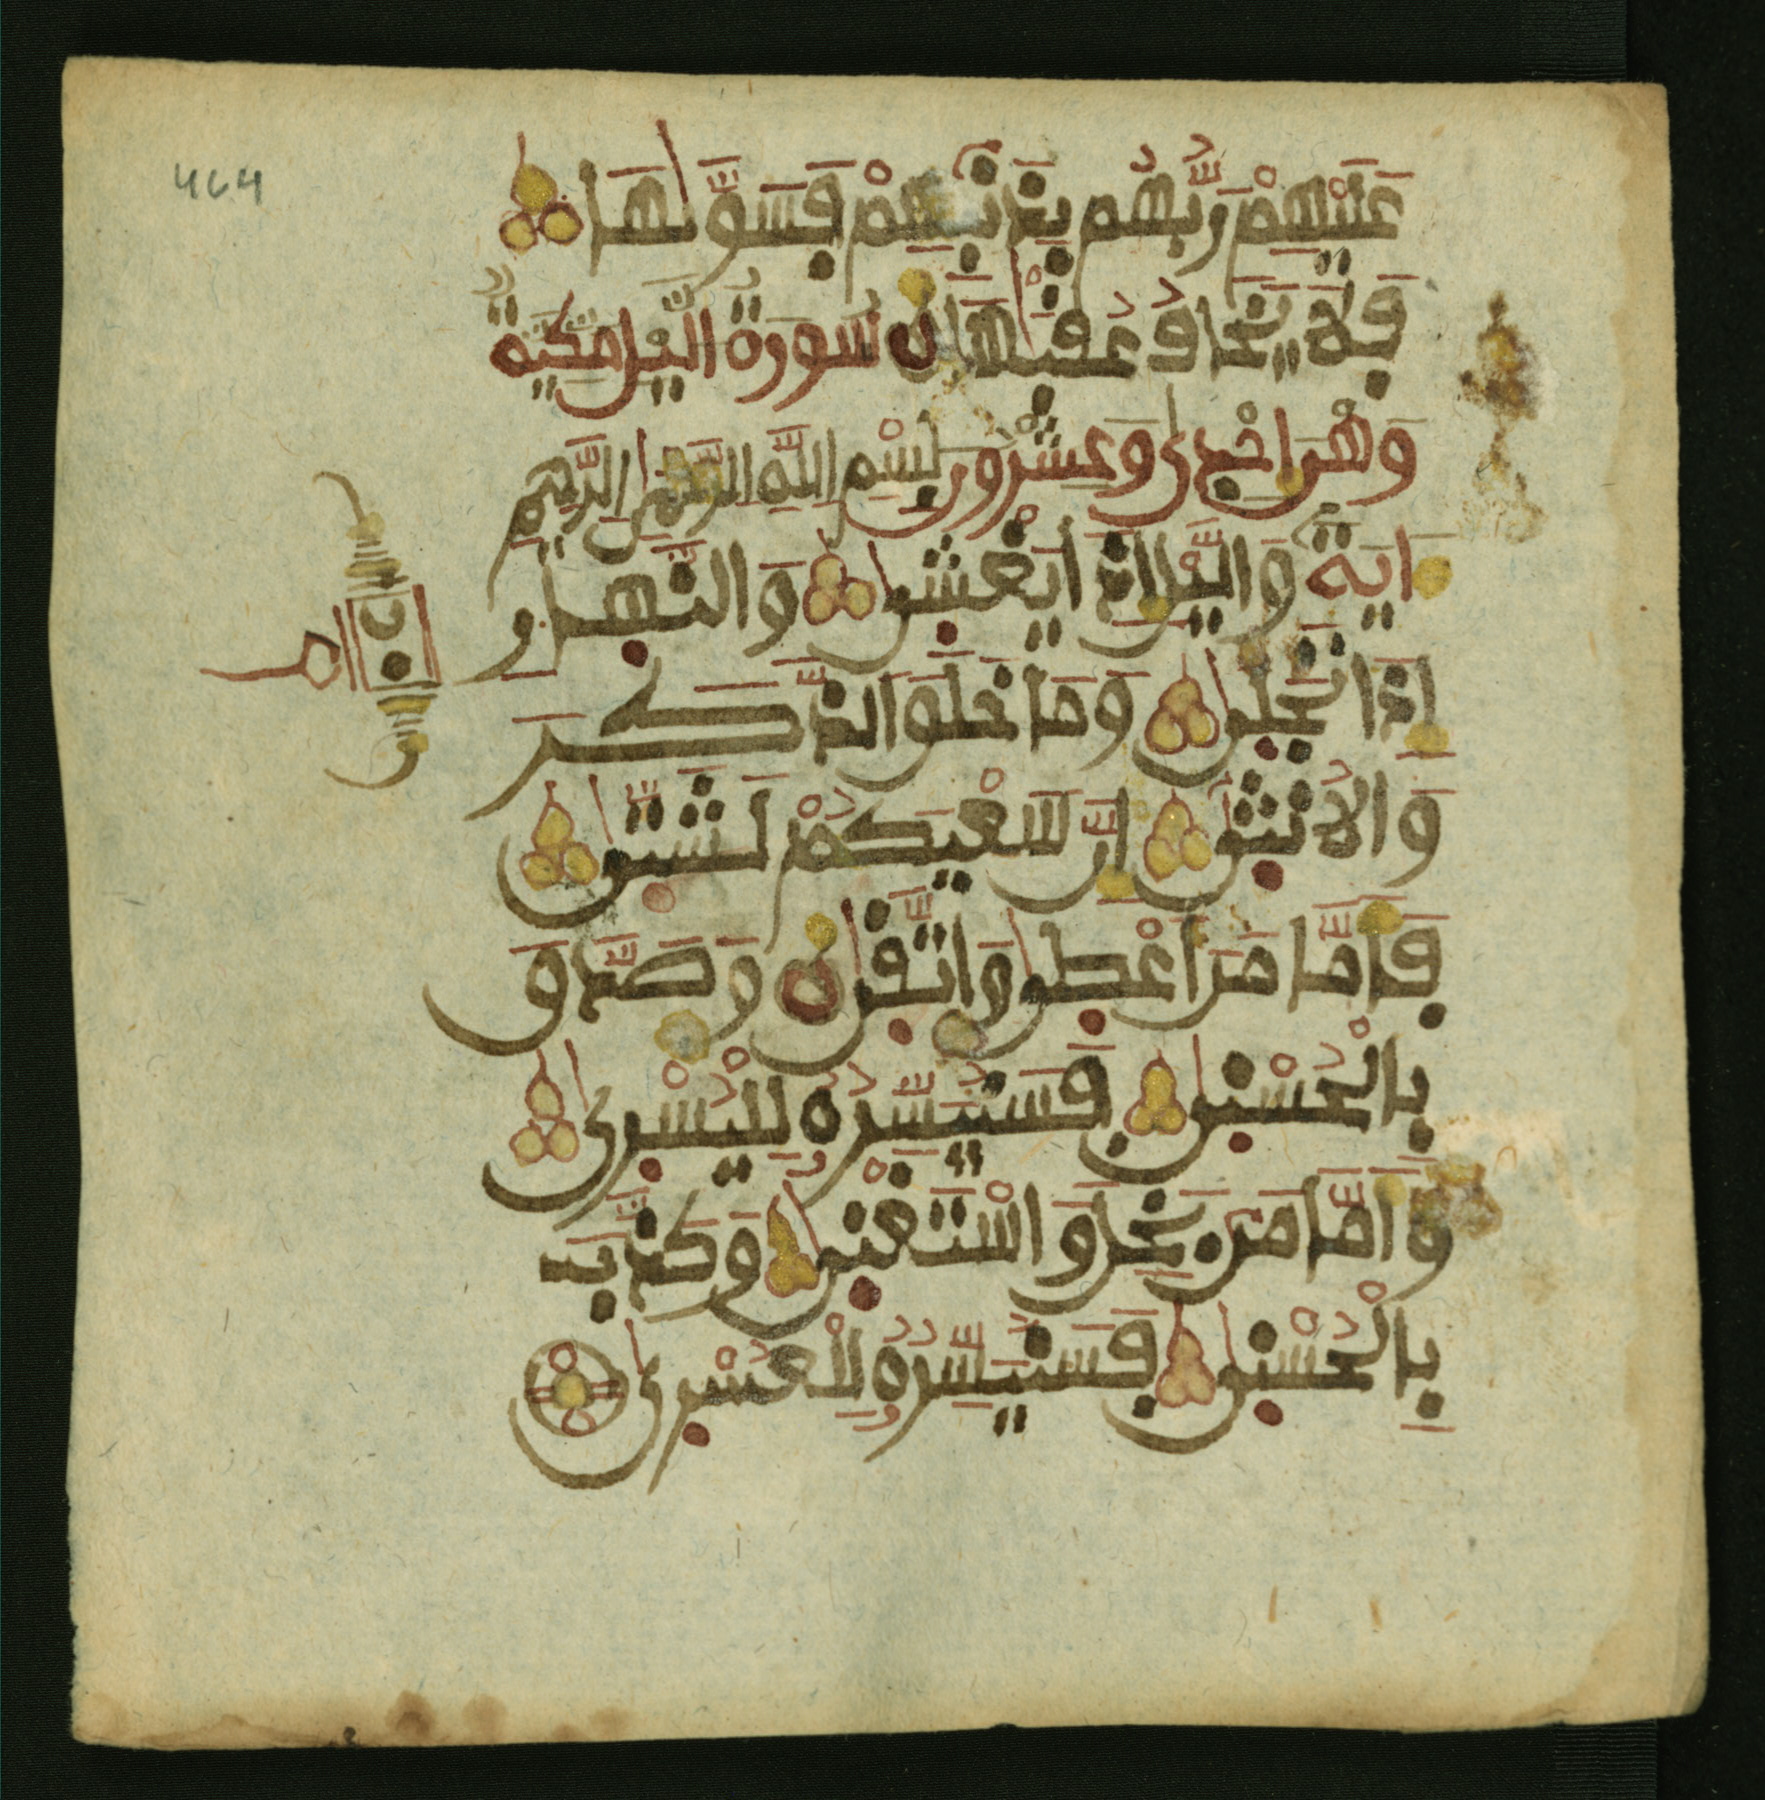 464
عَلَيْهِمْ رَبُّهُم بِذَنۢبِهِمْ فَسَوَّىٰهَا
فَلَا يَخَافُ عُقْبَٰهَا سُورَةُ اليْلِ مَكِّيَّةٌ
وَهْىَ إحْدى وَعِشْرُونَ بِسْمِ اللَّهِ الرَّحْمَٰنِ الرَّحِيمِ
ايَةً وَاليْلِ إِذَا يَغْشىٰ وَالنَّهَارِ
إِذَا تَجَلّىٰ وَمَا خَلَقَ الذَّكَرَ
وَالاُنثىٰ إِنَّ سَعْيَكُمْ لَشَتّىٰ
فَأَمَّا مَنَ اَعْطىٰ وَاتَّقىٰ وَصَدَّقَ
بِالْحُسْنىٰ فَسَنُيَسِّرُهُ لِلْيُسْرىٰ
وَأَمَّا مَنۢ بَخِلَ وَاسْتَغْنىٰ وَكَذَّبَ
بِالْحُسْنىٰ فَسَنُيَسِّرُهُ لِلْعُسْرىٰ